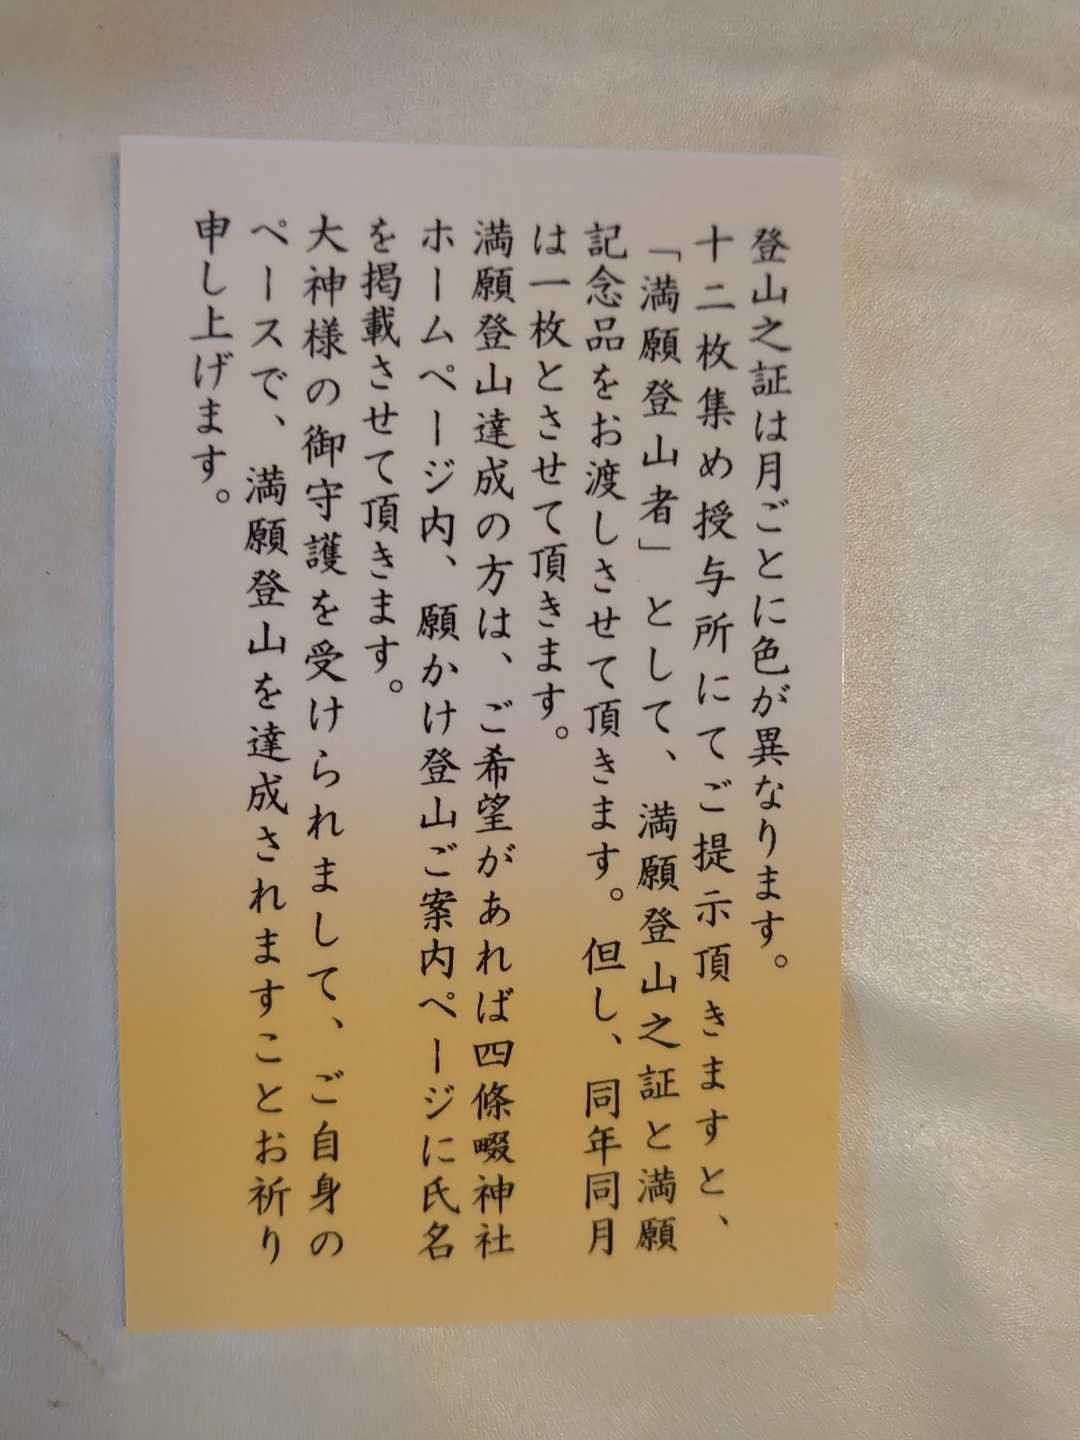 登山之証は月ごとに色が異なります。
十二枚集め授与所にてご提示頂きますと、
「満願登山者」として、満願登山之証と満願
記念品をお渡しさせて頂きます。但し、同年同月
は一枚とさせて頂きます。
満願登山達成の方は、ご希望があれば四條畷神社
ホームページ内、願かけ登山ご案内ページに氏名
を掲載させて頂きます。
大神様の御守護を受けられまして、ご自身の
ペースで、満願登山を達成されますことお祈り
申し上げます。